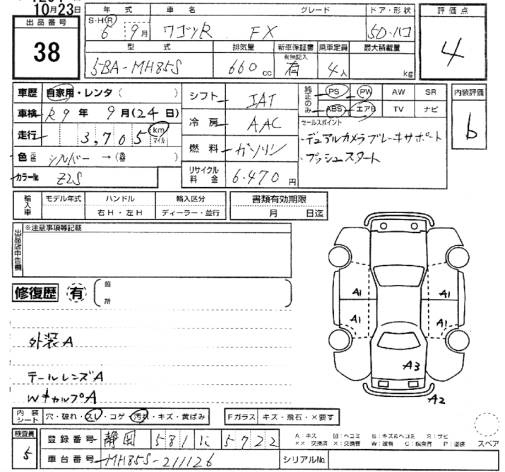 10月23日
出品番号 38
年式 車名 グレード ドア・形状 評価点
S・H・R 6年9月 ワゴンR FX 5D・ハコ 4
型式 排気量 新車保証書 乗車定員 最大積載量
有無記入
5BA-MH85S 660cc 有 4人 kg
車歴 自家用・レンタ( )
車検 R9年9月(24日)
走行 3,705 km マイル
色 シルバー →( )
カラーNo. Z2S
シフト IAT
冷房 AAC
燃料 ガソリン
リサイクル料金 6,470円
純正のみ PS PW AW SR
ABS エアB TV ナビ
内装評価 b
セールスポイント
・デュアルカメラブレーキサポート
・プッシュスタート
輸入車 モデル年式 ハンドル 輸入区分 書類有効期限
右H・左H ディーラー・並行 月 日迄
出品店申告欄 ※注意事項等記載
修復歴 有 箇所
外装A
テールレンズA
Wキャルプ A
A1 A1
A1 A1
A3
A2
内装シート 穴・破れ・スレ・コゲ・汚れ・キズ・黄ばみ Fガラス キズ・飛石・×要す
検査員 5
登録番号 静岡 581 に 5722
車台番号 MH85S-211126
シリアルNo.
A:キズ U:ヘコミ B:キズ&ヘコミ S:サビ
スペア